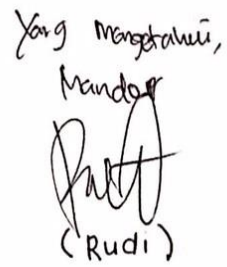 Yang mengetahui,
Mandor
(Rudi)